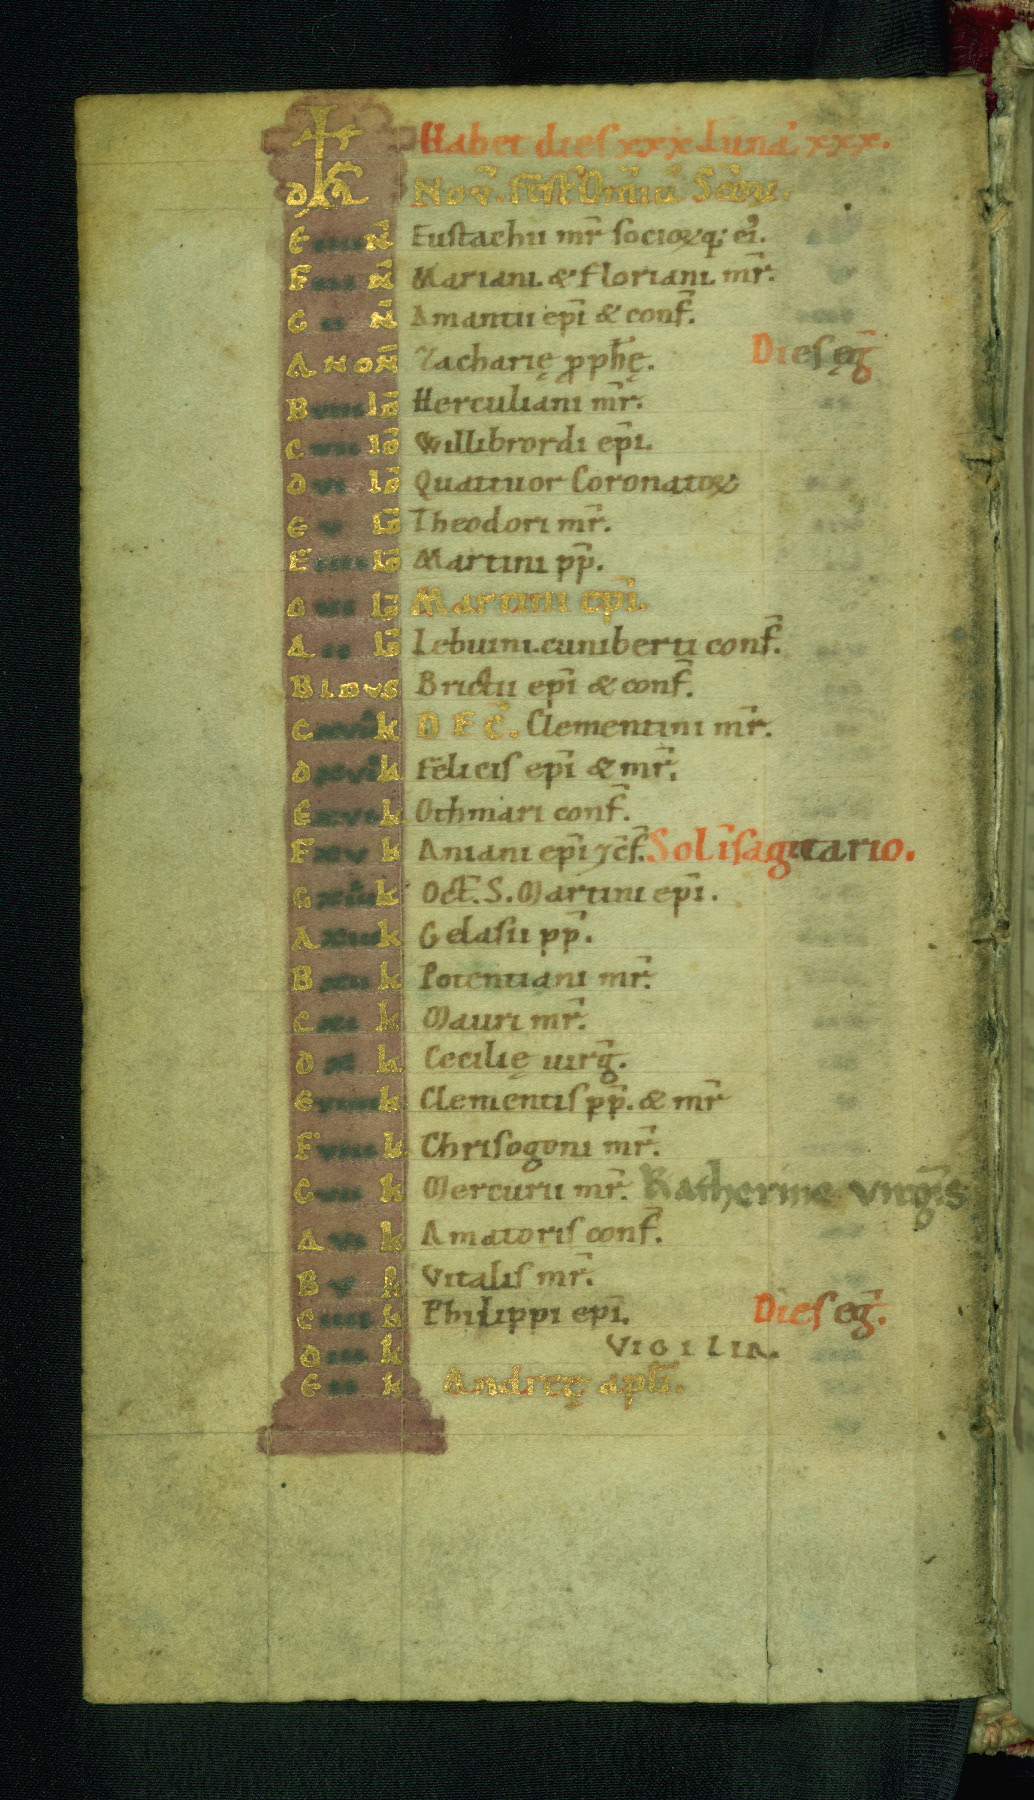 Habet dies xxx luna xxx.
D KL Nov̄. Fest̄ Om̄iū Sc̄oꝝ.
E iiii N̄ Eustachii mr̄ sociorꝫq; ei᾽.
F iii N̄ Mariani. & Floriani. mr̄.
G ii N̄ Amantii ep̄i & conf̄.
A NON̄ Zacharię ꝓph̄ę. Dies eḡ
B viii id̄ Herculiani mr̄.
C vii id̄ Willibrordi ep̄i.
D vi id̄ Quattuor Coronatoꝝ
E v id̄ Theodori mr̄.
F iiii id̄ Martini pp̄.
G iii id̄ Martini ep̄i.
A ii id̄ Lebuini. cuniberti conf̄.
B IDVS Brictii ep̄i & conf̄.
C xviii k DEC̄. Clementini mr̄.
D xvii k Felicis ep̄i & mr̄.
E xvi k Othmari conf̄.
F xv k Aniani ep̄i ⁊ c̄f. Sol ī sagittario.
G xiiii k Oct̄. S. Martini ep̄i.
A xiii k Gelasii pp̄.
B xii k Potentiani mr̄.
C xi k Mauri mr̄.
D x k Cecilię uirḡ.
E viiii k Clementis pp̄. & mr̄
F viii k Chrisogoni mr̄.
G vii k Mercurii mr̄. Katherine virḡis
A vi k Amatoris conf̄.
B v k Vitalis mr̄.
C iiii k Philippi ep̄i. Dies eḡ.
D iii k VIGILIA.
E ii k Andreę apl̄i.